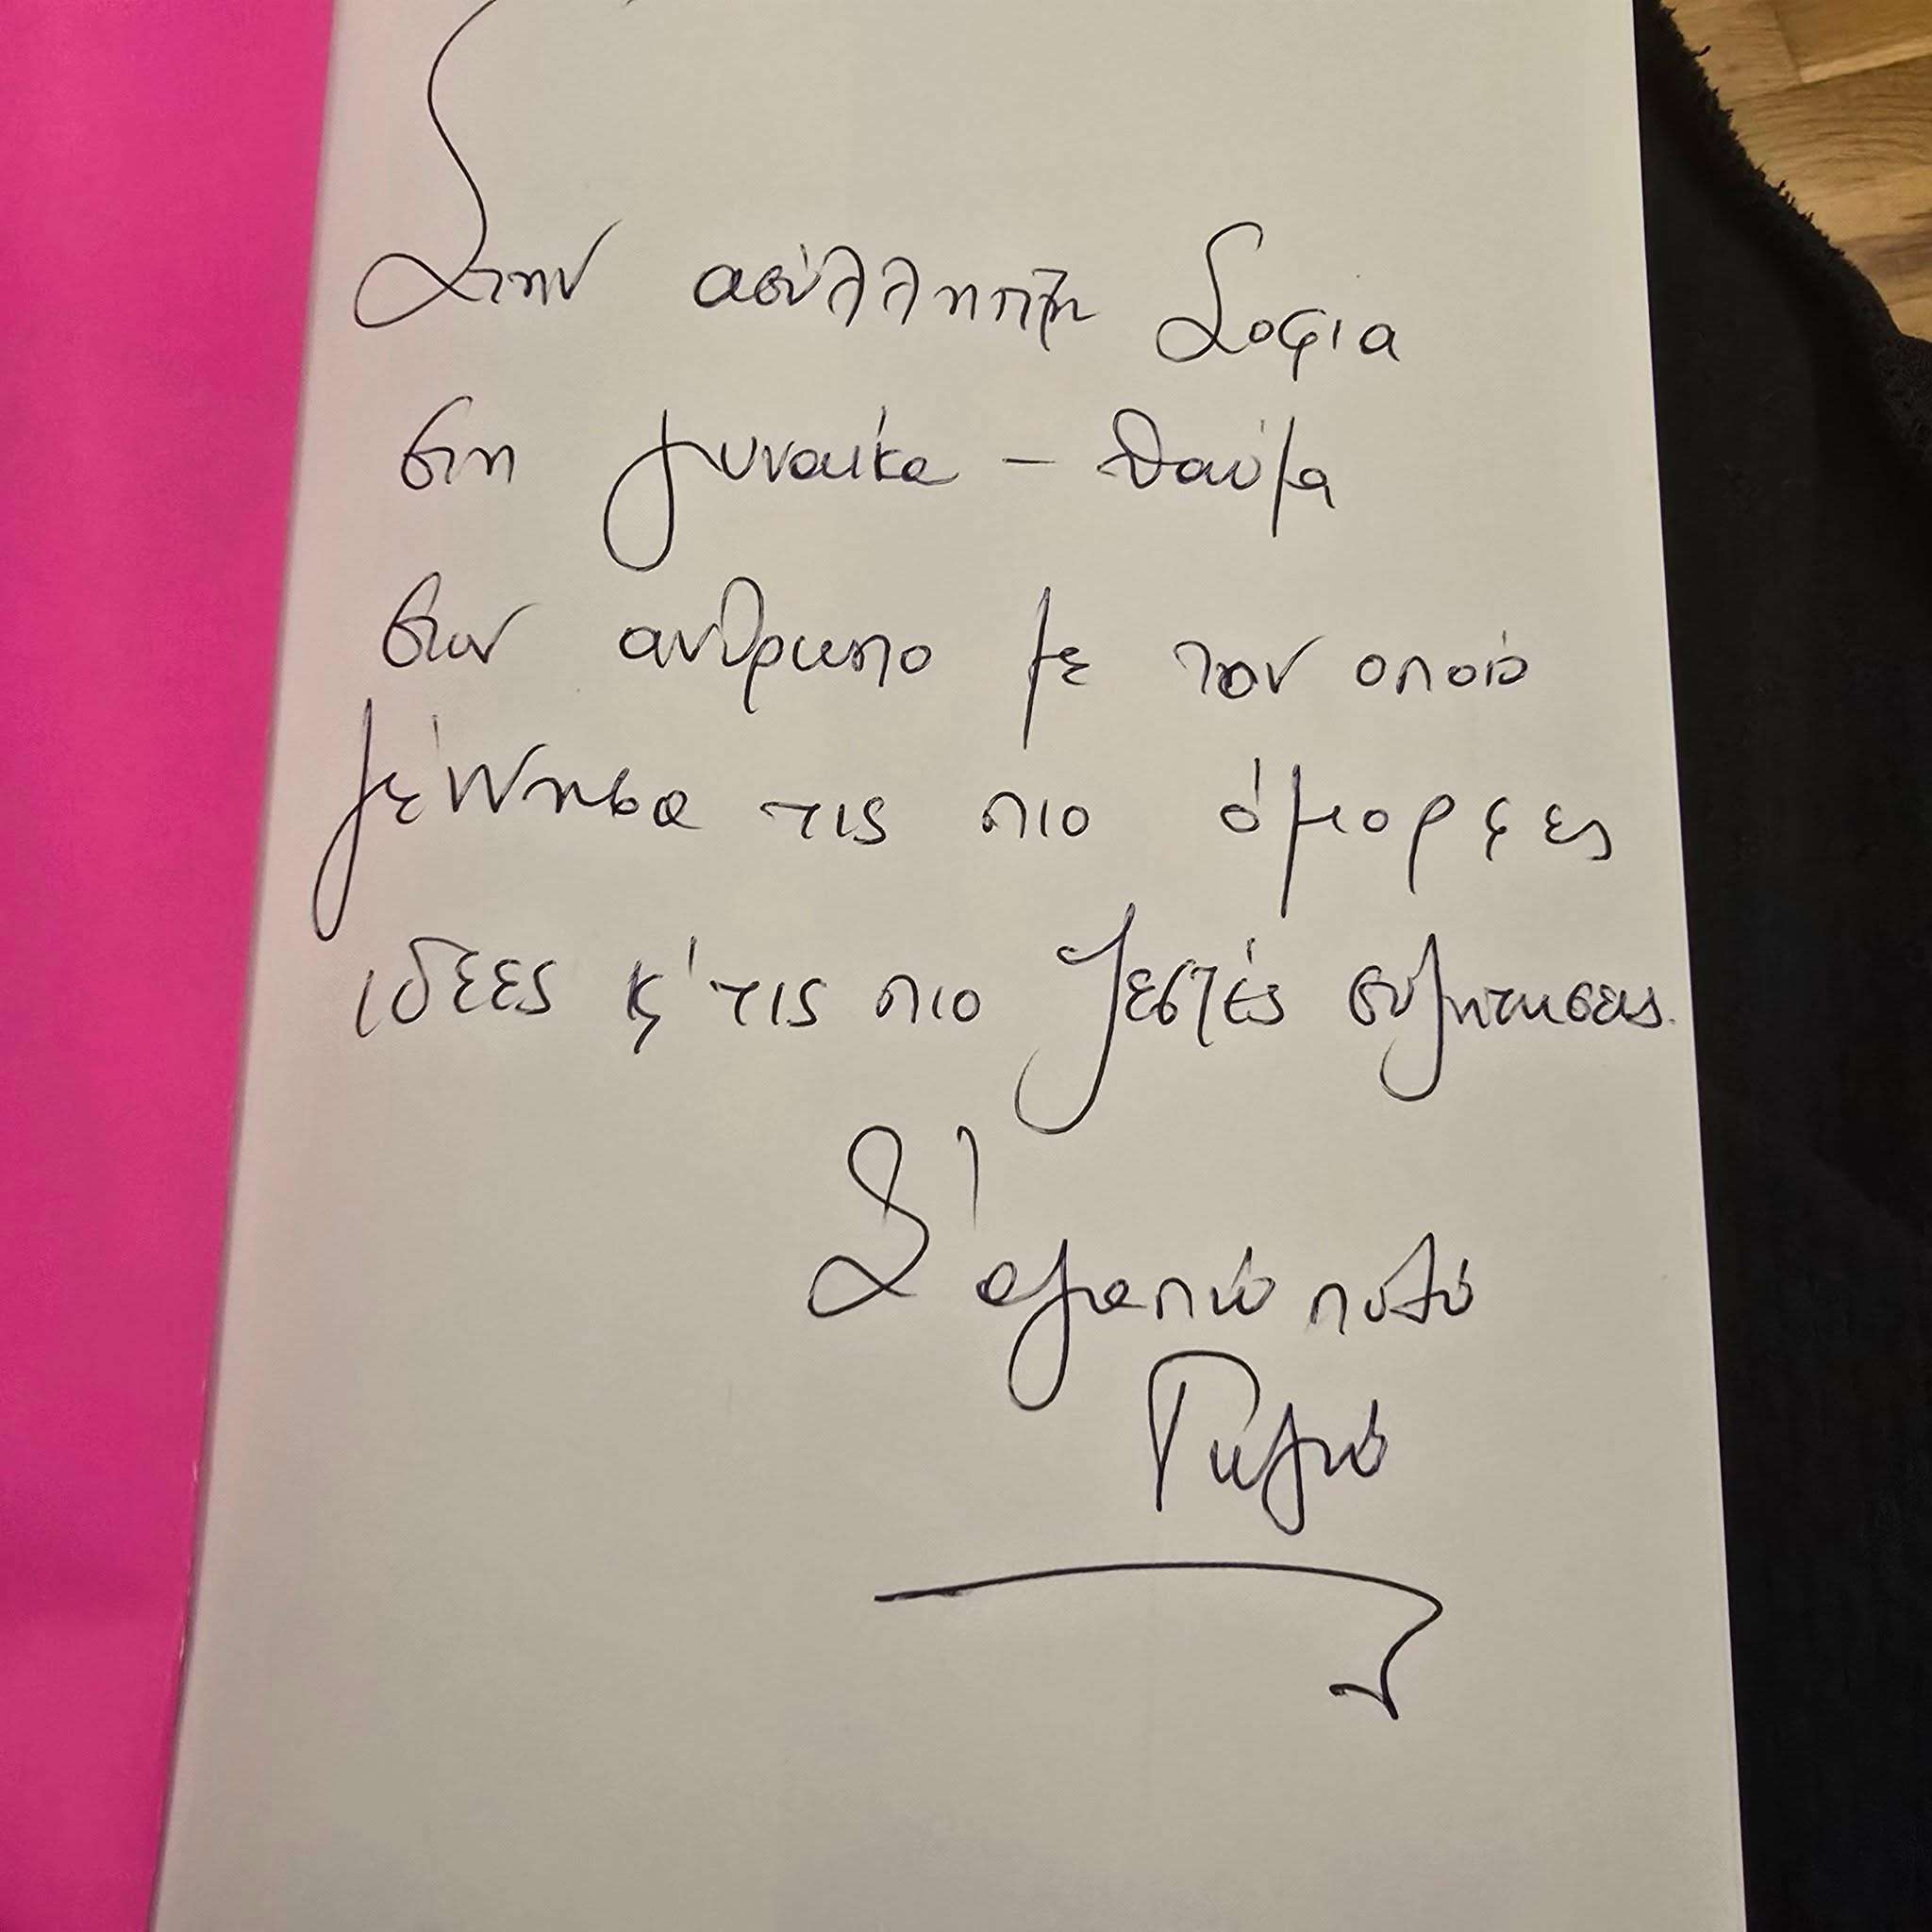 Στην ασύλληπτη Σοφια
στη γυναίκα - θαύμα
στον ανθρωπο με τον οποίο
γέννησα τις πιο όμορφες
ιδέες κ' τις πιο ζεστές συζητησεις.
Σ' αγαπώ πολύ